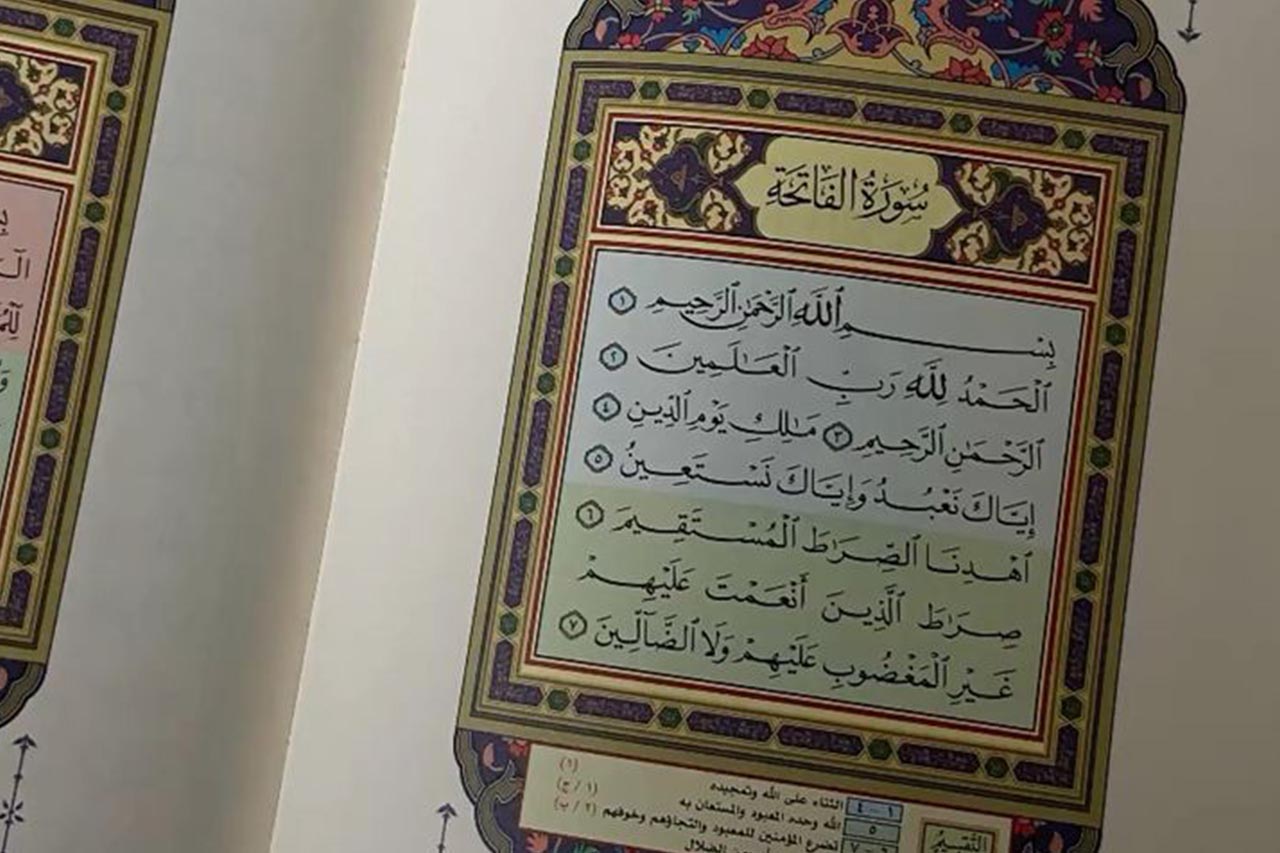 سُورَةُ الفَاتِحَةِ
بِسْمِ ٱللَّهِ ٱلرَّحْمَٰنِ ٱلرَّحِيمِ ١
ٱلْحَمْدُ لِلَّهِ رَبِّ ٱلْعَٰلَمِينَ ٢
ٱلرَّحْمَٰنِ ٱلرَّحِيمِ ٣ مَٰلِكِ يَوْمِ ٱلدِّينِ ٤
إِيَّاكَ نَعْبُدُ وَإِيَّاكَ نَسْتَعِينُ ٥
ٱهْدِنَا ٱلصِّرَٰطَ ٱلْمُسْتَقِيمَ ٦
صِرَٰطَ ٱلَّذِينَ أَنْعَمْتَ عَلَيْهِمْ
غَيْرِ ٱلْمَغْضُوبِ عَلَيْهِمْ وَلَا ٱلضَّآلِّينَ ٧
التقسيم
١ - ٤ الثناء على الله وتمجيده (١)
٥ الله وحده المعبود والمستعان به (١ / ج)
٦ - ٧ تضرع المؤمنين للمعبود والتجاؤهم وخوفهم (٢ / ب)
الضلال